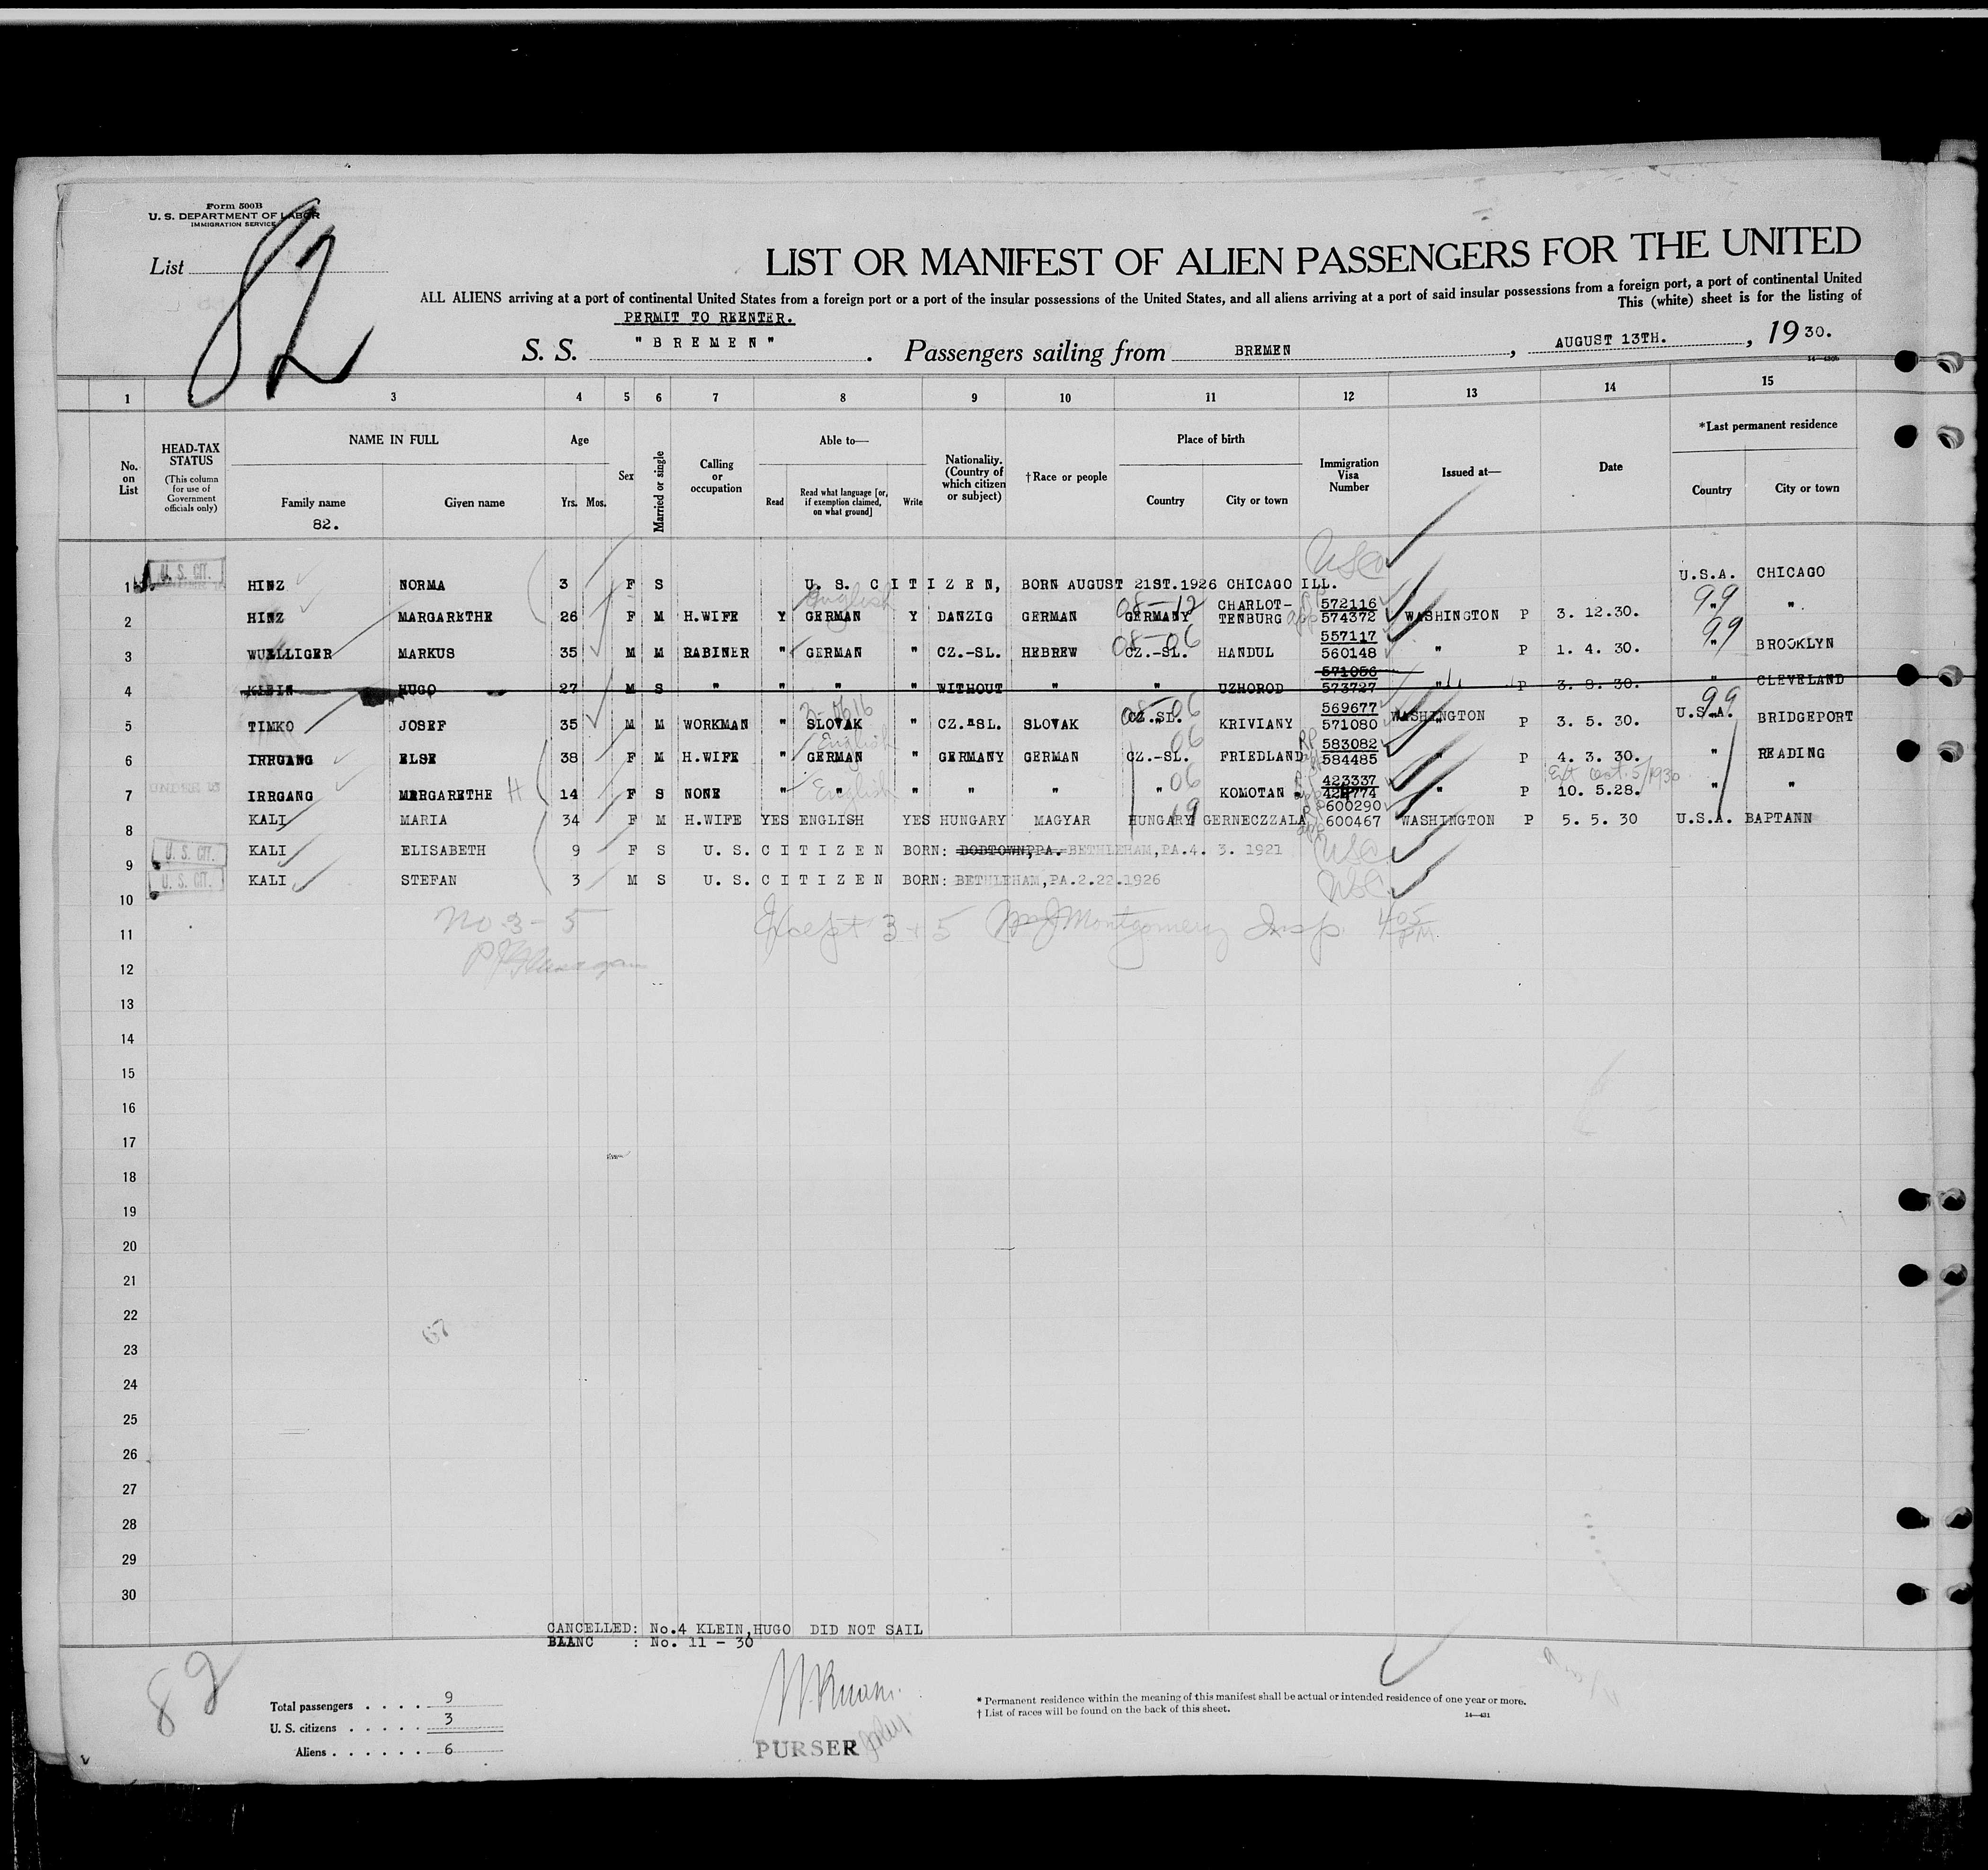 Form 500B
U. S. DEPARTMENT OF LABOR
IMMIGRATION SERVICE
List
82
LIST OR MANIFEST OF ALIEN PASSENGERS FOR THE UNITED
ALL ALIENS arriving at a port of continental United States from a foreign port or a port of the insular possessions of the United States, and all aliens arriving at a port of said insular possessions from a foreign port, a port of continental United
This (white) sheet is for the listing of
PERMIT TO REENTER.
S. S. "BREMEN" . Passengers sailing from BREMEN , AUGUST 13TH. , 1930.
1 3 4 5 6 7 8 9 10 11 12 13 14 15
No. on List
HEAD-TAX STATUS
(This column for use of Government officials only)
NAME IN FULL
Family name
Given name
82.
Age
Yrs. Mos.
Sex
Married or single
Calling or occupation
Able to—
Read
Read what language [or, if exemption claimed, on what ground]
Write
Nationality. (Country of which citizen or subject)
†Race or people
Place of birth
Country
City or town
Immigration Visa Number
Issued at—
Date
*Last permanent residence
Country
City or town
1 U. S. CIT. HINZ NORMA 3 F S U. S. CITIZEN, BORN AUGUST 21ST.1926 CHICAGO ILL. USC U.S.A. CHICAGO
2 HINZ MARGARETHE 26 F M H.WIFE Y GERMAN English Y DANZIG GERMAN GERMANY 08-12 CHARLOT-TENBURG 572116 574372 WASHINGTON P 3. 12.30. " 99 "
3 WUELLIGER MARKUS 35 M M RABINER " GERMAN " CZ.-SL. HEBREW CZ.-SL. 08-06 HANDUL 557117 560148 " P 1. 4. 30. " 99 BROOKLYN
4 KLEIN HUGO 27 M S " " " " WITHOUT " " UZHOROD 571056 573727 " P 3. 8. 30. " CLEVELAND
5 TIMKO JOSEF 35 M M WORKMAN " SLOVAK " CZ.-SL. SLOVAK CZ.SL. 08-06 KRIVIANY 569677 571080 WASHINGTON " P 3. 5. 30. U.S.A. 99 BRIDGEPORT
6 IRRGANG ELSE 38 F M H.WIFE " GERMAN English " GERMANY GERMAN CZ.-SL. 06 FRIEDLAND 583082 584485 " P 4. 3. 30. " READING
7 IRRGANG MARGARETHE H 14 F S NONE " " English " " " " 06 KOMOTAN 423337 " P 10. 5.28. Ext Oct. 5/1930 " "
8 KALI MARIA 34 F M H.WIFE YES ENGLISH YES HUNGARY MAGYAR HUNGARY 19 GERNECZZALA 600290 600467 WASHINGTON P 5. 5. 30 U.S.A. BAPTANN
9 U. S. CIT. KALI ELISABETH 9 F S U. S. CITIZEN BORN: DODTOWN,PA. BETHLEHAM,PA.4. 3. 1921 USC
10 U. S. CIT. KALI STEFAN 3 M S U. S. CITIZEN BORN: BETHLEHAM,PA.2.22.1926 USC
11 No 3 - 5 Except 3 + 5 Montgomery Insp. 405 PM
12
13
14
15
16
17
18
19
20
21
22
23
24
25
26
27
28
29
30
67
CANCELLED: No.4 KLEIN,HUGO DID NOT SAIL
BLANC : No. 11 - 30
82
Total passengers . . . . . 9
U. S. citizens . . . . . 3
Aliens . . . . . . 6
PURSER
* Permanent residence within the meaning of this manifest shall be actual or intended residence of one year or more.
† List of races will be found on the back of this sheet.
14—431